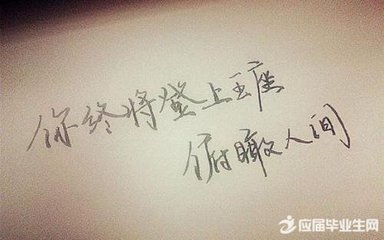 你终将登上王座
俯瞰人间
应届毕业生网